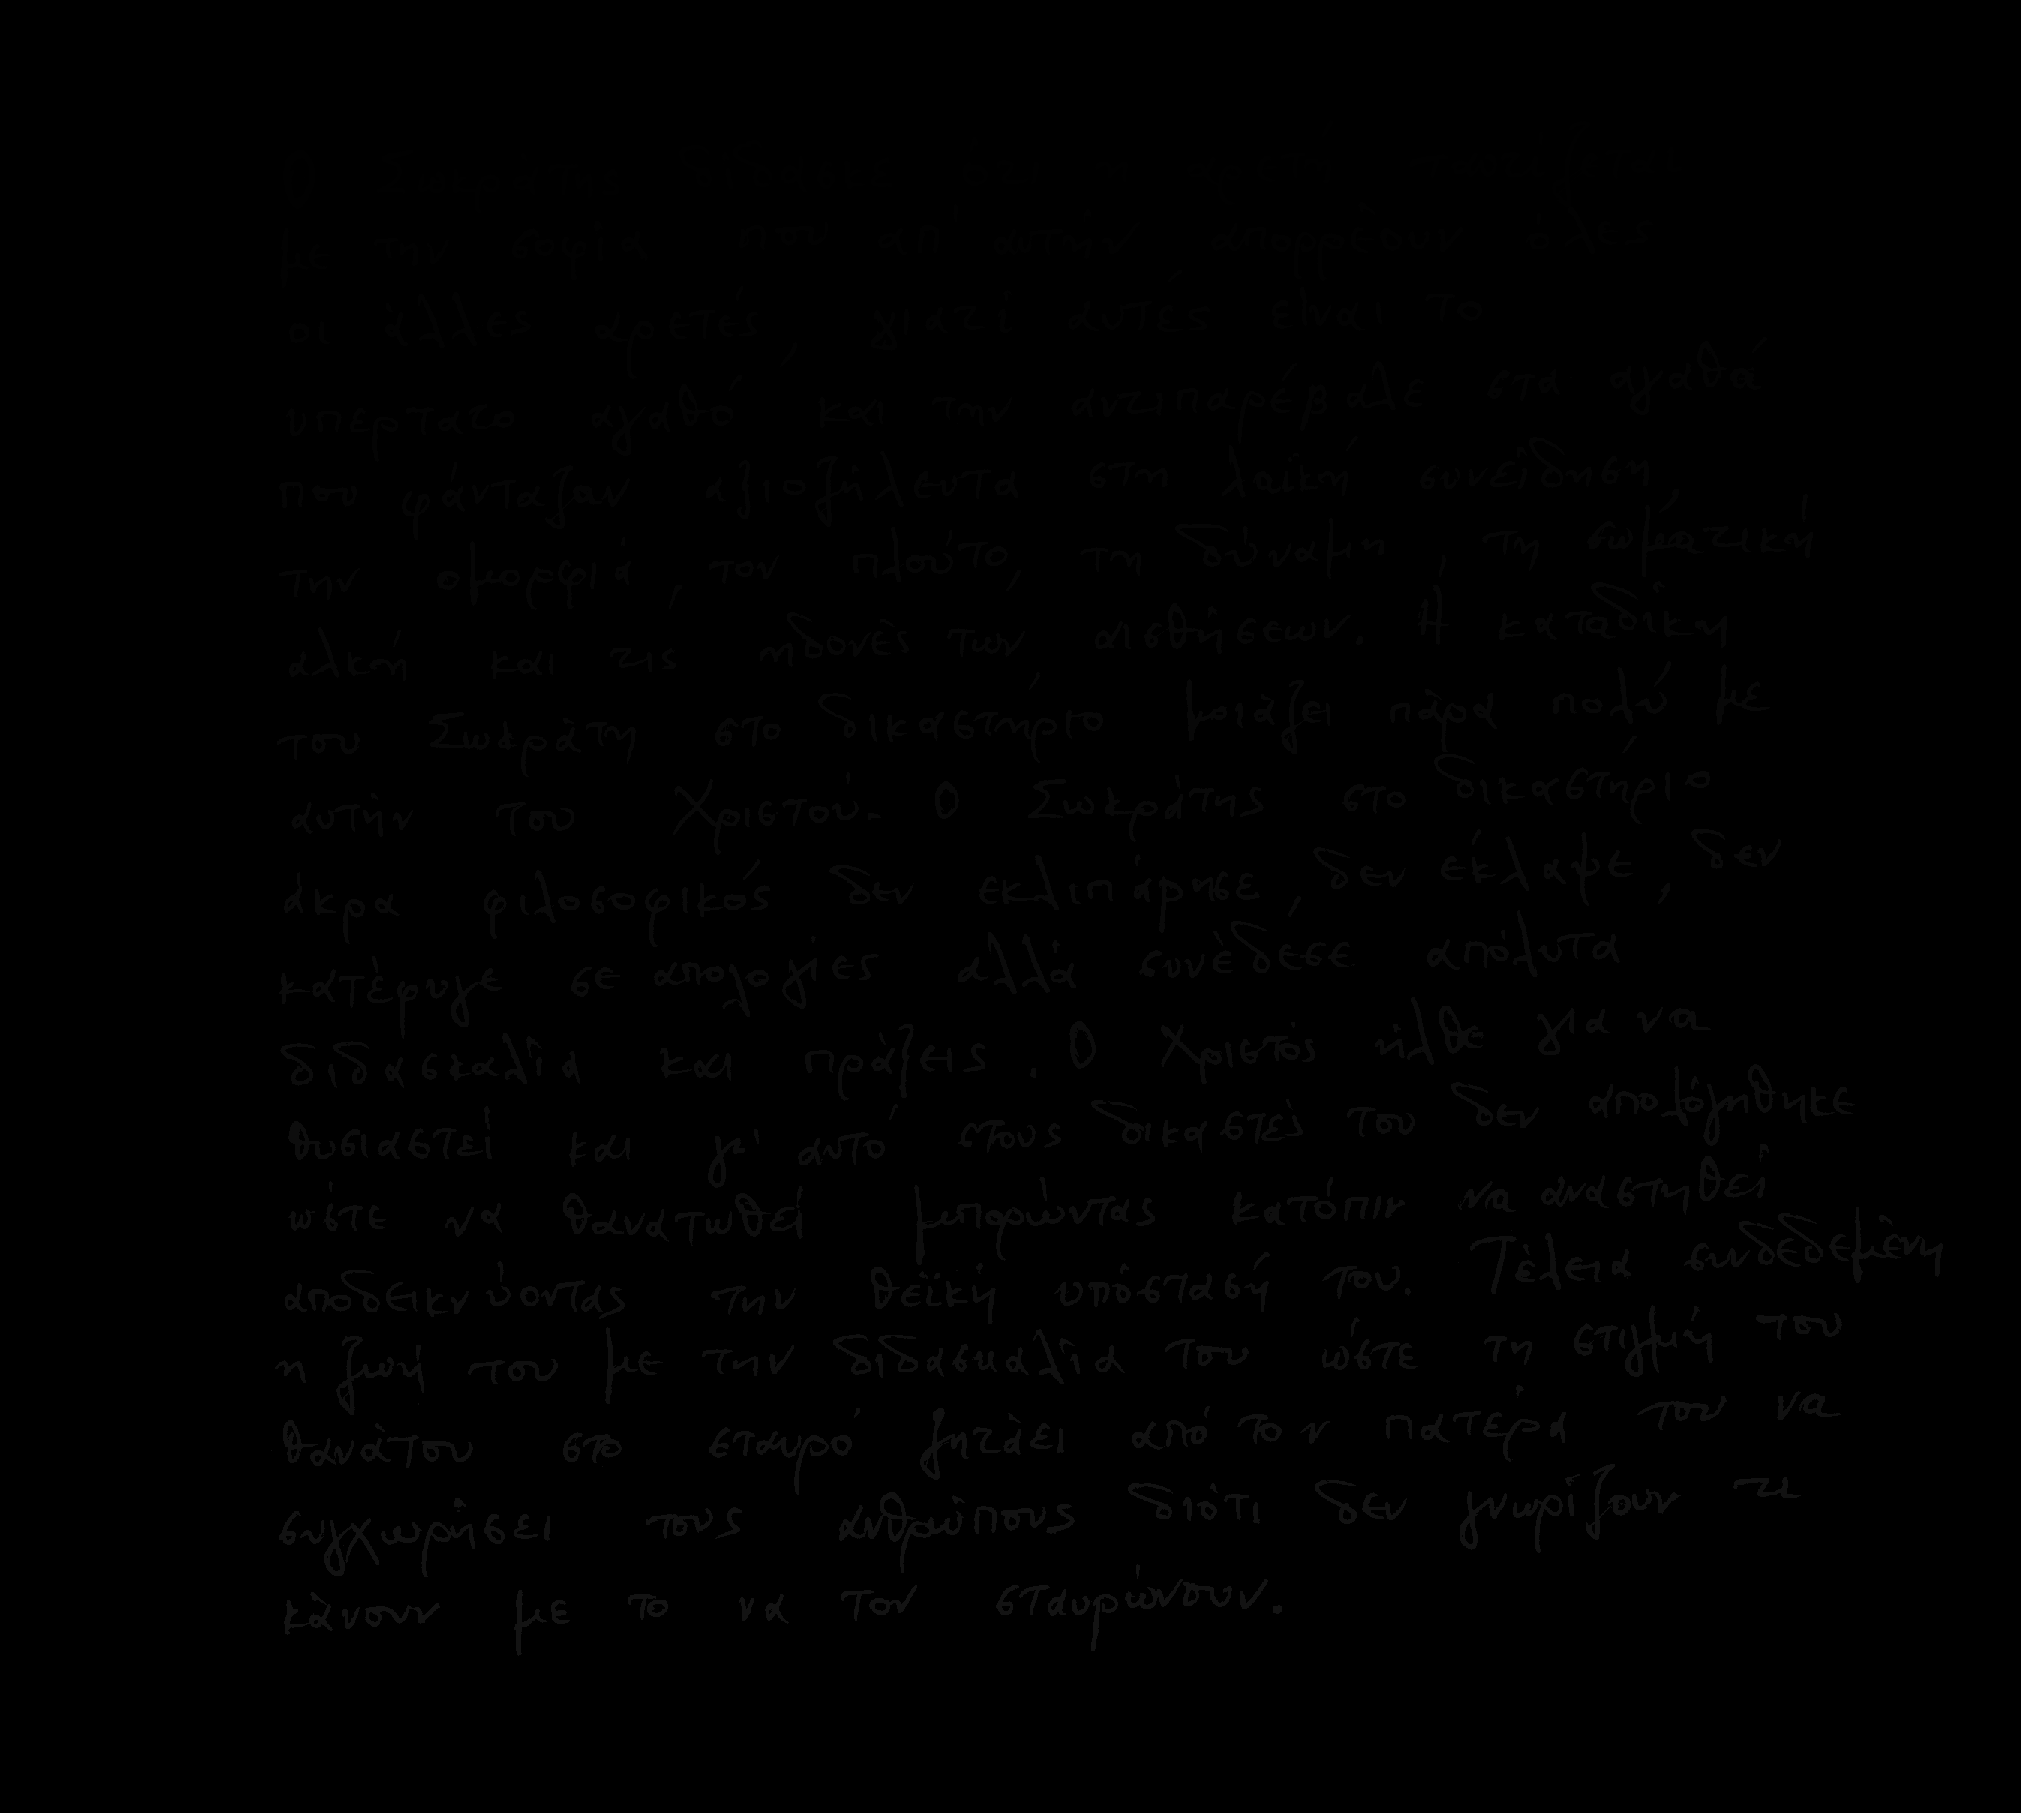 Ο Σωκράτης
με την σοφία που απ' αυτήν απορρέουν όλες
οι άλλες αρετές, γιατί αυτές είναι το
υπέρτατο αγαθό και την αντιπαρέβαλε στα αγαθά
που φάνταζαν αξιοζήλευτα στη λαϊκή συνείδηση,
την ομορφιά, τον πλούτο, τη δύναμη, τη σωματική
αλκή και τις ηδονές των αισθήσεων. Η καταδίκη
του Σωκράτη στο δικαστήριο μοιάζει πάρα πολύ με
αυτήν του Χριστού. Ο Σωκράτης στο δικαστήριο
άκρα φιλοσοφικός δεν εκλιπάρησε, δεν έκλαψε, δεν
κατέφυγε σε απολογίες αλλά συνέδεσε απόλυτα
διδασκαλία και πράξεις. Ο Χριστός ήλθε για να
θυσιαστεί και γι' αυτό στους δικαστές του δεν απολόγηθηκε
ώστε να θανατωθεί μπορώντας κατόπιν να αναστηθεί
αποδεικνύοντας την θεϊκή υπόστασή του. Τέλεια συνδεδεμένη
η ζωή του με την διδασκαλία του ώστε τη στιγμή του
θανάτου στο σταυρό ζητάει από τον πατέρα του να
συγχωρήσει τους ανθρώπους διότι δεν γνωρίζουν τι
κάνουν με το να τον σταυρώνουν.